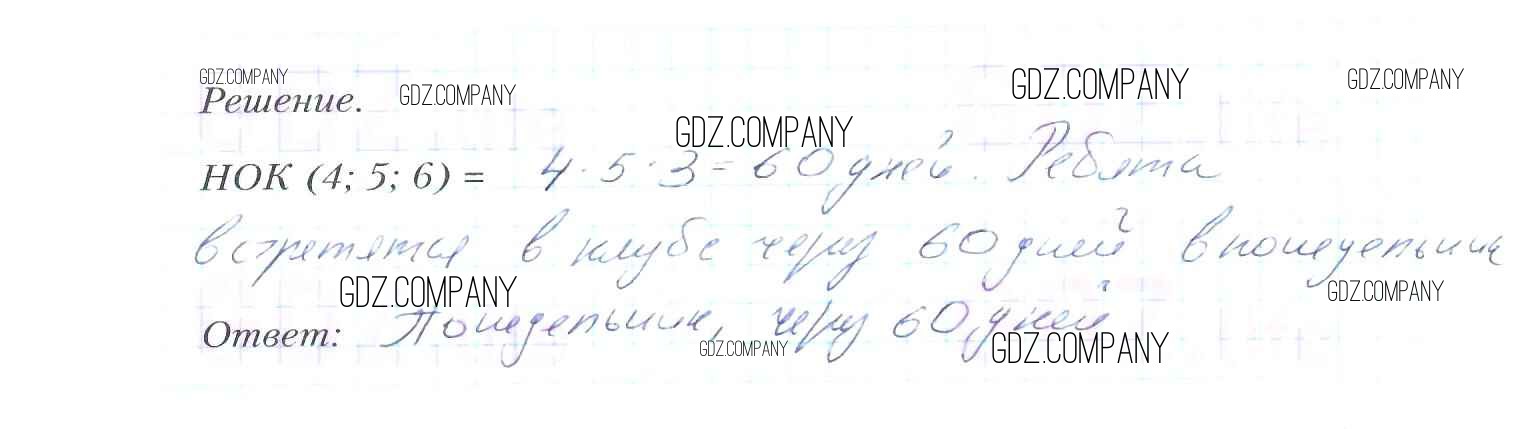 GDZ.COMPANY
Решение. GDZ.COMPANY GDZ.COMPANY GDZ.COMPANY
GDZ.COMPANY
НОК (4; 5; 6) = 4 · 5 · 3 = 60 дней. Ребята
встретятся в клубе через 60 дней в понедельник
GDZ.COMPANY GDZ.COMPANY
Ответ: Понедельник, через 60 дней
GDZ.COMPANY GDZ.COMPANY